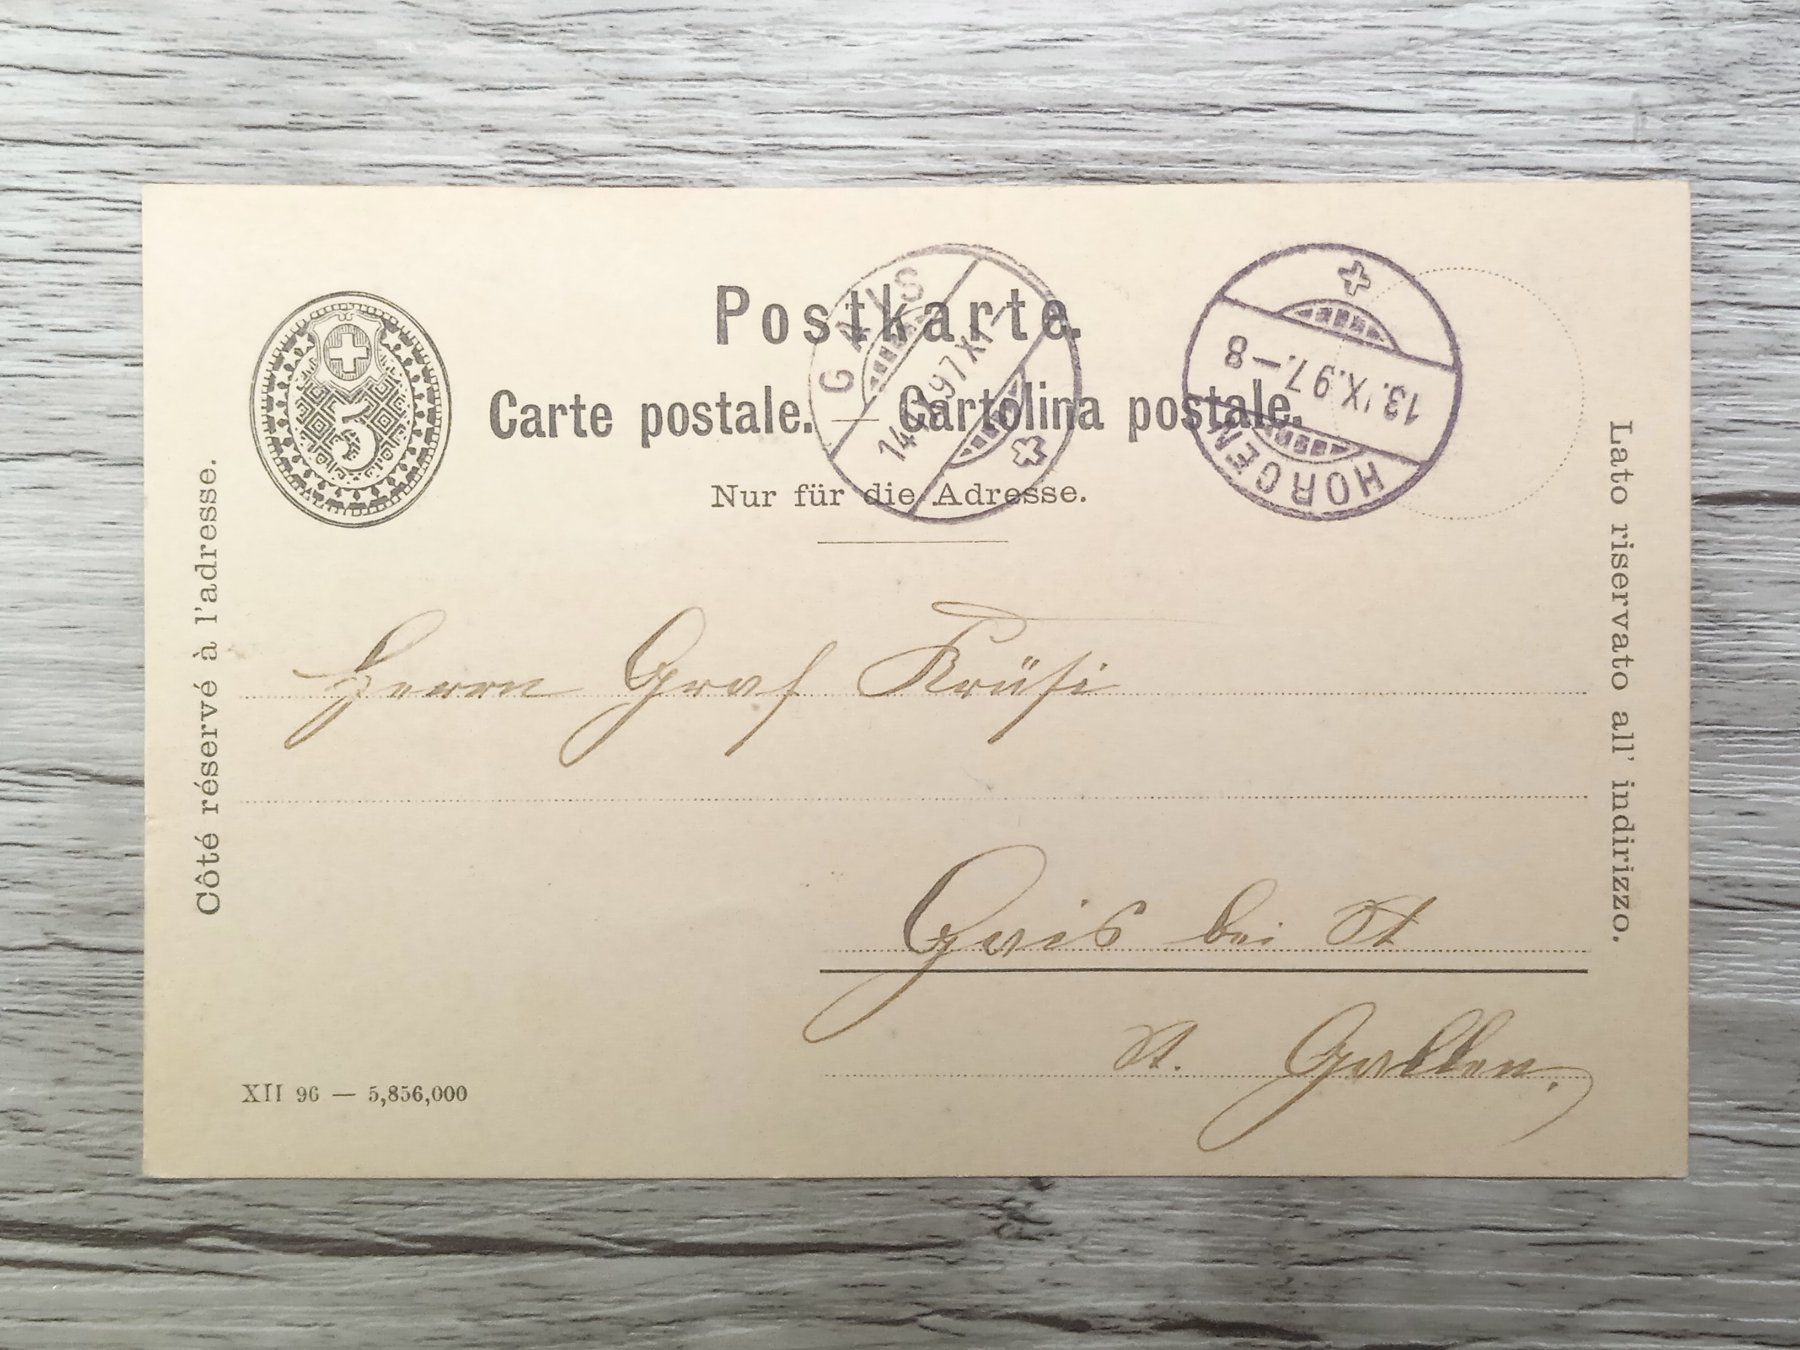 Postkarte.
Carte postale. — Cartolina postale.
Nur für die Adresse.
5
GAIS
97 XI
HORGEN
13. IX. 97. – 8
Côté réservé à l'adresse.
Lato riservato all' indirizzo.
Herrn Graf Krüsi
Gais bei St
St. Gallen.
XII 96 — 5,856,000